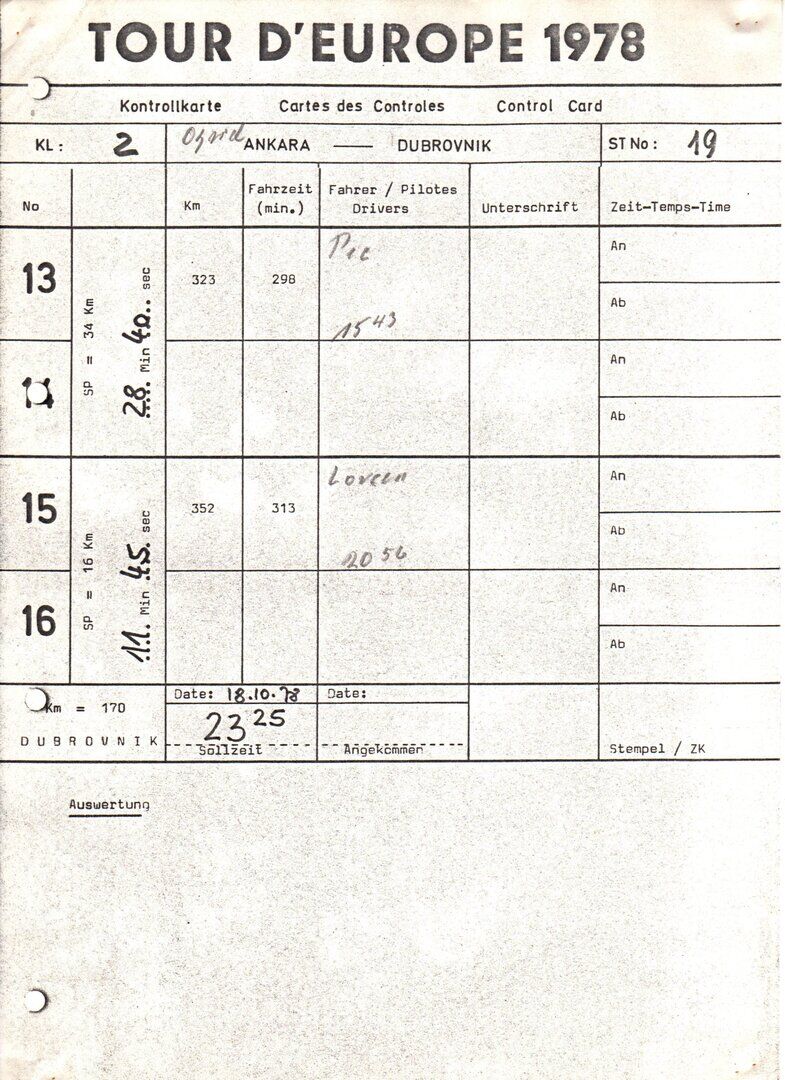 TOUR D'EUROPE 1978
Kontrollkarte Cartes des Controles Control Card
KL: 2 ANKARA — DUBROVNIK ST No: 19
No Km Fahrzeit (min.) Fahrer / Pilotes Drivers Unterschrift Zeit-Temps-Time
13 SP = 34 Km 28. Min 40.. sec 323 298 An
15 43 Ab
14 An
Ab
15 SP = 16 Km 11. Min 45. sec 352 313 An
20 56 Ab
16 An
Ab
Km = 170 Date: 18.10.78 Date:
23 25
DUBROVNIK Sollzeit Angekommen Stempel / ZK
Auswertung